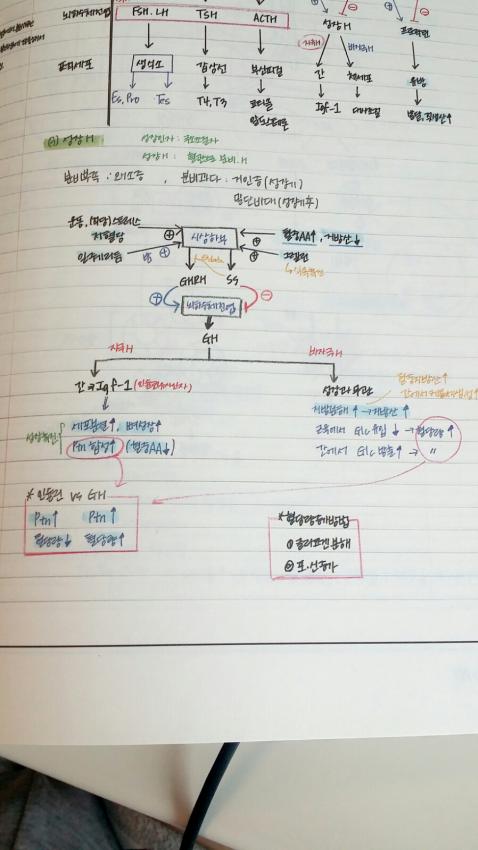 뇌하수체전엽 FSH.LH TSH ACTH 성장H 프로락틴
자극 비자극
표적세포 생식소 갑상선 부신피질 간 체세포 유방
Es, Pro Tes T4, T3 코티졸 Igf-1 대사조절 발달, 젖생산↑
알도스테론
성장H
성장H : 혈관으로 분비.H
분비부족 : 왜소증 , 분비과다 : 거인증(성장기)
말단비대(성장기후)
운동, 스트레스
저혈당 ⊕ 시상하부 ⊕ 혈중AA↑, 지방산↓
일주리듬 밤 ⊕ ⊕ 그렐린
GHRH SS
⊕ 뇌하수체전엽 ⊖
GH
자극 비자극
간⇒Igf-1 성장과무관
세포분열↑, 뼈성장↑ 지방분해↑→지방산↑
Ptn 합성↑ (혈중AA↓) 근육에서 Glc 유입↓→혈당량↑
간에서 Glc 방출↑→ 〃
* 인슐린 vs GH
Ptn↑ Ptn↑
혈당량↓ 혈당량↑
* 혈당량증가방법
① 글리코겐분해
② 포.신증가